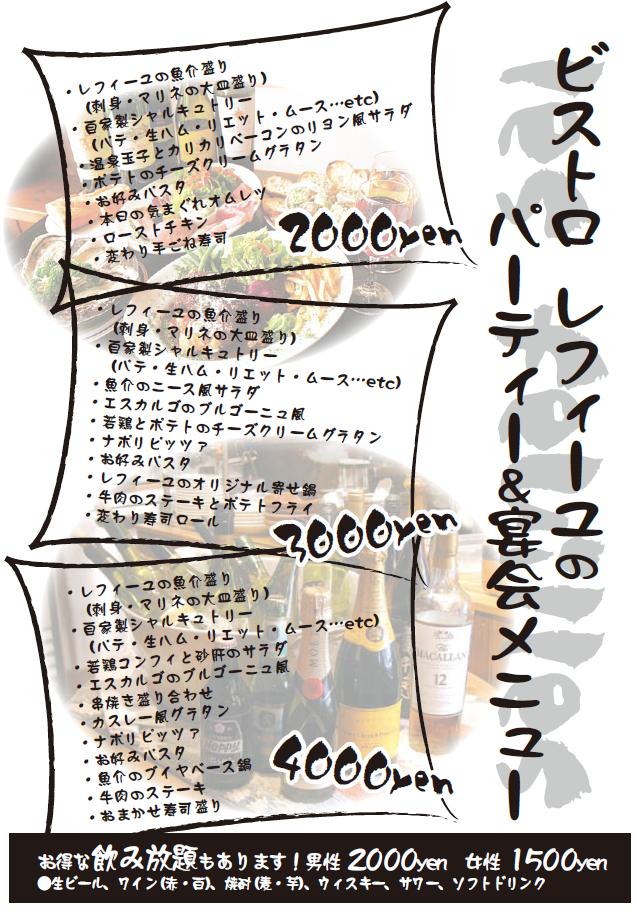 ビストロ レフィーユの
パーティー&宴会メニュー
・レフィーユの魚介盛り
(刺身・マリネの大皿盛り)
・自家製シャルキュトリー
(パテ・生ハム・リエット・ムース…etc)
・温泉玉子とカリカリベーコンのリヨン風サラダ
・ポテトのチーズクリームグラタン
・お好みパスタ
・本日の気まぐれオムレツ
・ローストチキン
・変わり手ごね寿司
2000yen
・レフィーユの魚介盛り
(刺身・マリネの大皿盛り)
・自家製シャルキュトリー
(パテ・生ハム・リエット・ムース…etc)
・魚介のニース風サラダ
・エスカルゴのブルゴーニュ風
・若鶏とポテトのチーズクリームグラタン
・ナポリピッツァ
・お好みパスタ
・レフィーユのオリジナル寄せ鍋
・牛肉のステーキとポテトフライ
・変わり寿司ロール
3000yen
・レフィーユの魚介盛り
(刺身・マリネの大皿盛り)
・自家製シャルキュトリー
(パテ・生ハム・リエット・ムース…etc)
・若鶏コンフィと砂肝のサラダ
・エスカルゴのブルゴーニュ風
・串焼き盛り合わせ
・カスレー風グラタン
・ナポリピッツァ
・お好みパスタ
・魚介のブイヤベース鍋
・牛肉のステーキ
・おまかせ寿司盛り
4000yen
MACALLAN
12
お得な飲み放題もあります!男性 2000yen 女性 1500yen
●生ビール、ワイン(赤・白)、焼酎(麦・芋)、ウィスキー、サワー、ソフトドリンク